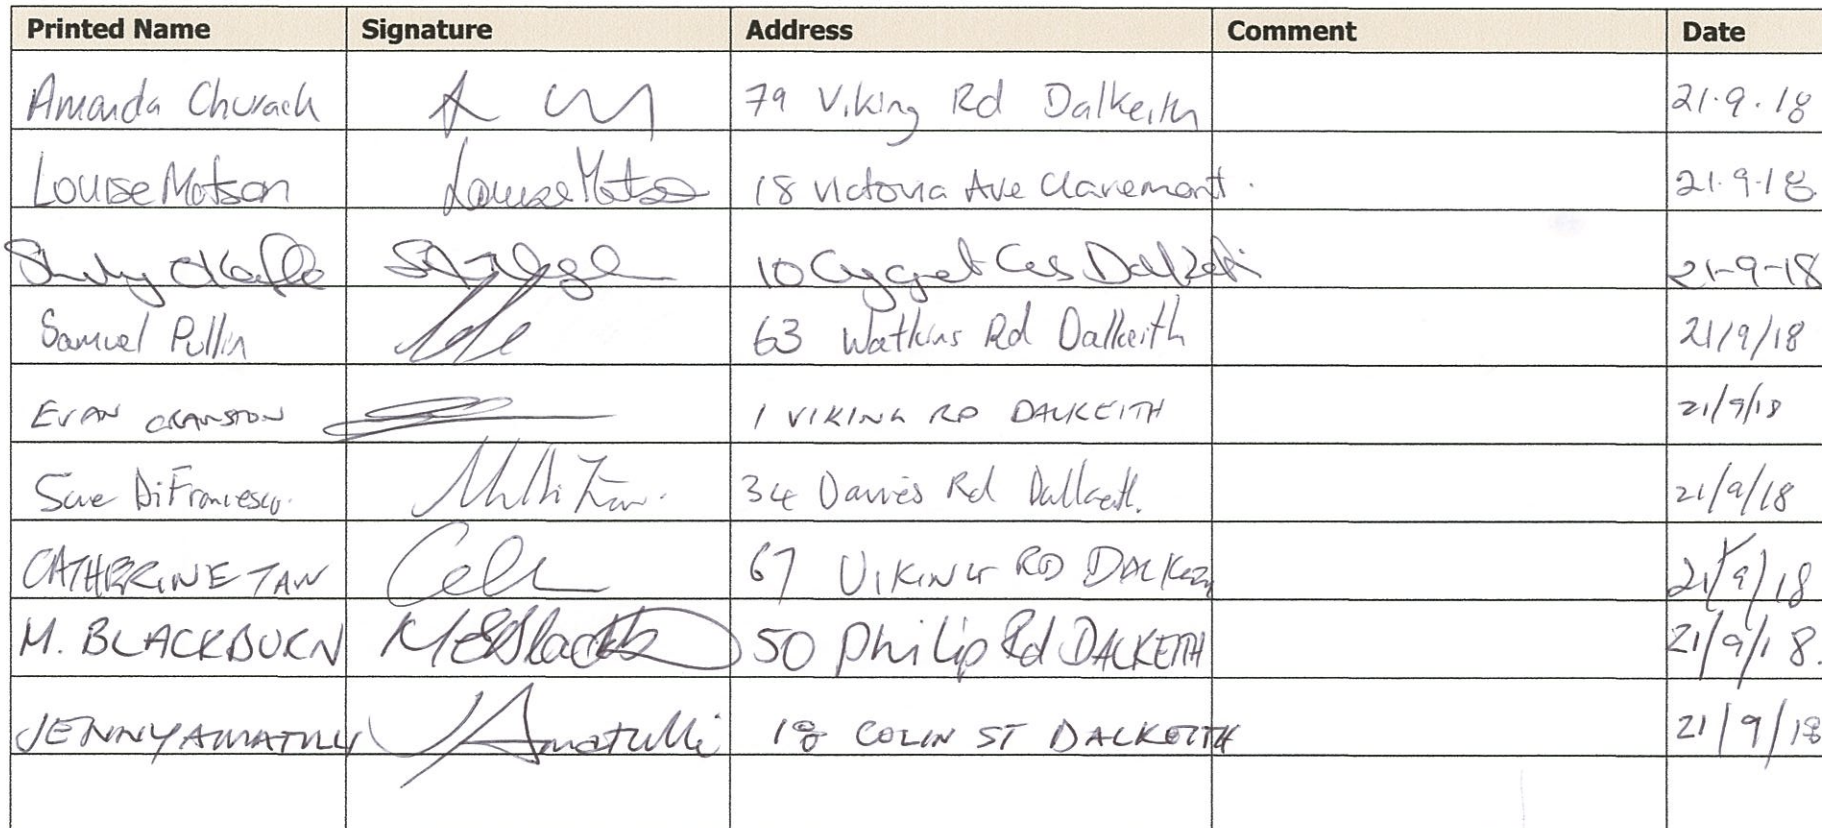 Printed Name Signature Address Comment Date
Amanda Churach 79 Viking Rd Dalkeith 21.9.18
Louise Matson Louise Matson 18 Victoria Ave Claremont. 21.9.18
10 Cygnet Cres Dalkeith 21-9-18
Samuel Pullin 63 Watkins Rd Dalkeith 21/9/18
EVAN CRANSTON 1 VIKING RD DALKEITH 21/9/18
Sue DiFrancesco. 34 Davies Rd Dalkeith. 21/9/18
CATHERINE TAN 67 VIKING RD DALKEITH 21/9/18
M. BLACKBURN 50 Philip Rd DALKEITH 21/9/18.
JENNY AMATULLI J Amatulli 18 COLIN ST DALKEITH 21/9/18